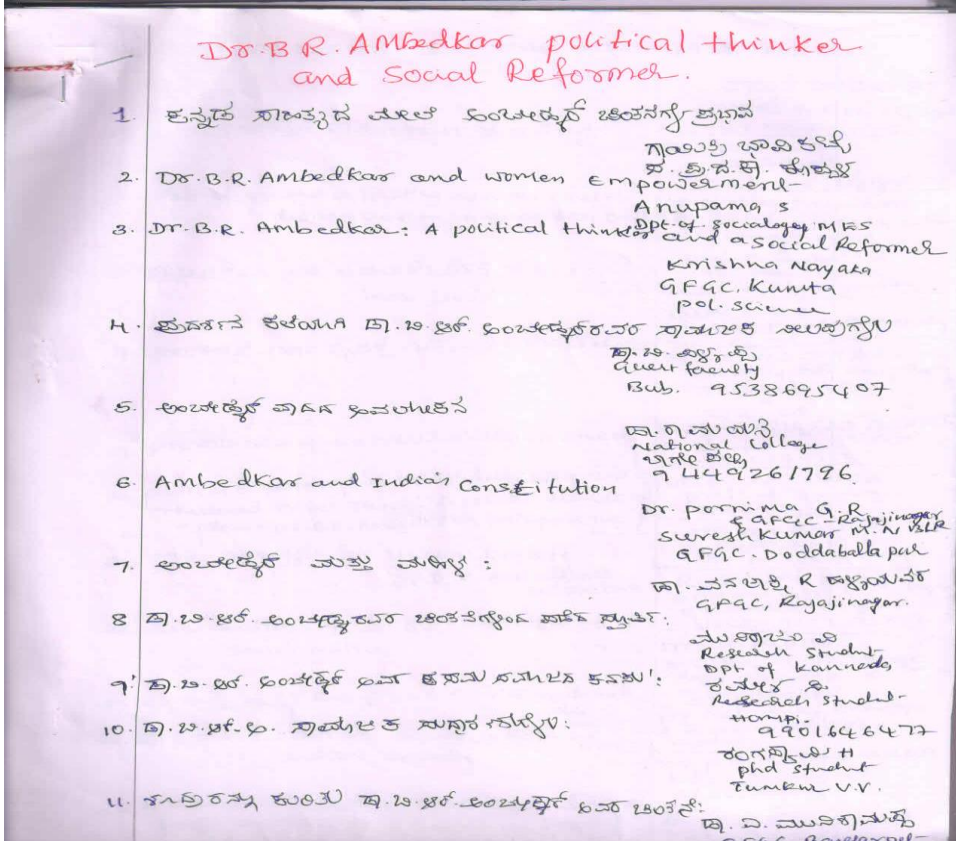 Dr. B R. Ambedkar political thinker
and Social Reformer.
1. ಕನ್ನಡ ಸಾಹಿತ್ಯದ ಮೇಲೆ ಅಂಬೇಡ್ಕರ್ ಚಿಂತನೆಗಳ ಪ್ರಭಾವ
2. Dr. B.R. Ambedkar and women Empowerment-
Anupama S
Dpt. of Sociology MES
3. Dr. B.R. Ambedkar: A political thinker and a Social Reformer
Krishna Nayaka
GFGC. Kumta
pol. science
4. ಡಾ. ಬಿ. ಆರ್. ಅಂಬೇಡ್ಕರ್‌ರವರ ಸಾಮಾಜಿಕ ನಿಲುವುಗಳು
Guest faculty
Bub. 9538695407
5. ಅಂಬೇಡ್ಕರ್ ವಾದದ ಅವಲೋಕನ
National College
9449261796
6. Ambedkar and India's Constitution
Dr. pornima G.R
& GFGC - Rajajinagar
Suresh Kumar M.N BLR
GFGC. Doddaballapur
7. ಅಂಬೇಡ್ಕರ್ ಮತ್ತು ಮಹಿಳೆ :
GFGC, Rajajinagar.
8 ಡಾ. ಬಿ. ಆರ್. ಅಂಬೇಡ್ಕರವರ
Research Student
Dpt of Kannada
9 ಡಾ. ಬಿ. ಆರ್. ಅಂಬೇಡ್ಕರ್ ಅವರ ಸಮಾಜದ ಕನಸು :
Research Student-
Hampi.
9901646477
10. ಡಾ. ಬಿ. ಆರ್. ಅಂ. ಸಾಮಾಜಿಕ ಸುಧಾರಣೆಗಳು :
ರಂಗಸ್ವಾಮಿ H
phd Student
Tumkur V.V.
11. ಕುರಿತು ಡಾ. ಬಿ. ಆರ್. ಅಂಬೇಡ್ಕರ್ ಅವರ ಚಿಂತನೆ:
ಡಾ. ವಿ. ಮುನಿರಾಮಪ್ಪ